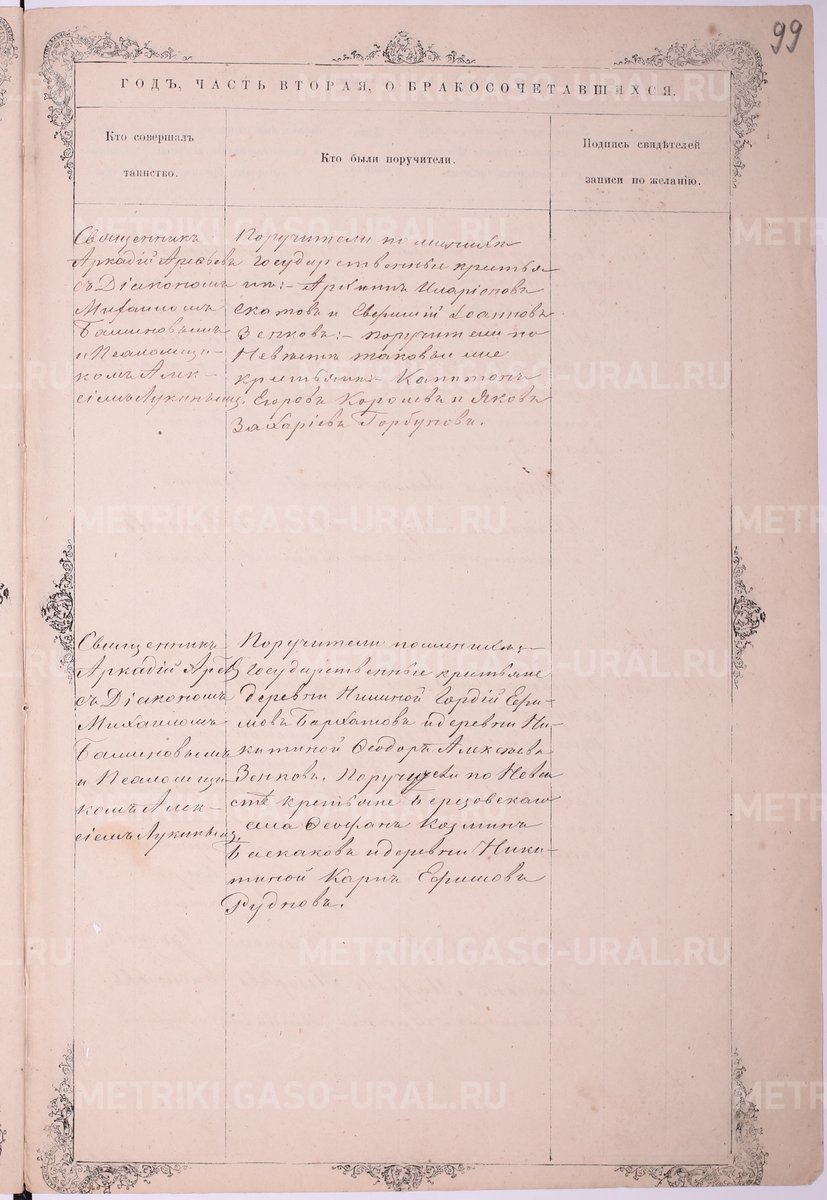 99
ГОДЪ, ЧАСТЬ ВТОРАЯ, О БРАКОСОЧЕТАВШИХСЯ.
Кто совершалъ
таинство.
Кто были поручители.
Подпись свидѣтелей
записи по желанію.
Священникъ
Аркадій
съ Діакономъ
Михаиломъ
и Псаломщи-
комъ Алек-
сіемъ Лукинымъ.
Поручители по
Государственные крестья
не:- Иларіоновъ
и Евфимій Іоанновъ
Зенковъ:- поручители по
Невѣстѣ таковые мне
крестьяне- Капитонъ
Егоровъ Королевъ и Яковъ
Захаріевъ Горбуновъ.
Священникъ
Аркадій
съ Діакономъ
Михаиломъ
и Псаломщи-
комъ Алек-
сіемъ Лукинымъ.
Поручители по женихѣ:-
Государственные крестьяне
деревни Гордій Ефи-
мовъ Бархатовъ и деревни Ни-
китиной Ѳеодоръ Алексѣевъ
Зенковъ. Поручители по Невѣ
стѣ крестьяне
села Ѳеофанъ Козминъ
Баскаковъ и деревни Ники-
тиной Карпъ Ефимовъ
Рудновъ.
METRIKI.GASO-URAL.RU